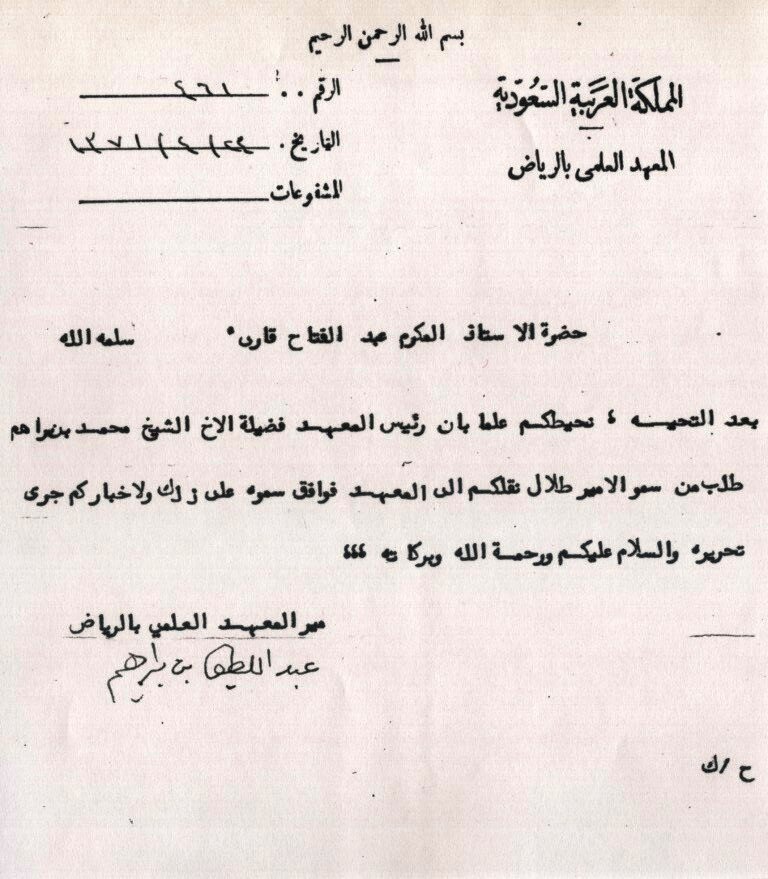 بسم الله الرحمن الرحيم
المملكة العربية السعودية
المعهد العلمي بالرياض
الرقم ٤٦١
التاريخ ٢٤/٤/١٣٧١
المشفوعات
حضرة الاستاذ المكرم عبد الفتاح قاري سلمه الله
بعد التحيه ، نحيطكم علما بان رئيس المعهد فضيلة الاخ الشيخ محمد بن براهم
طلب من سمو الامير طلال نقلكم الى المعهد فوافق سموه على ذلك ولاخباركم جرى
تحريره والسلام عليكم ورحمة الله وبركاته ،،،
مير المعهد العلمي بالرياض
عبد اللطيف بن براهيم
ح /ك